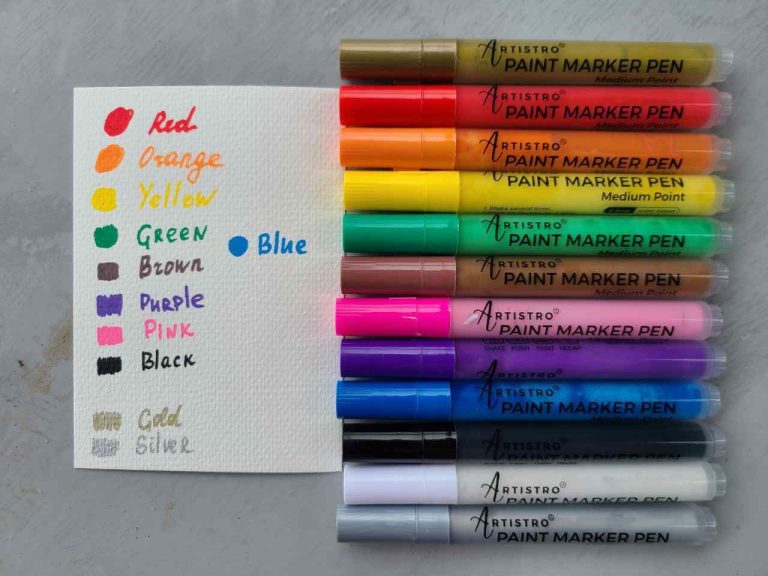 Red
Orange
Yellow
GREEN
Blue
Brown
Purple
Pink
Black
Gold
Silver
ARTISTRO®
PAINT MARKER PEN
Medium Point
ARTISTRO®
PAINT MARKER PEN
Medium Point
ARTISTRO®
PAINT MARKER PEN
PAINT MARKER PEN
Medium Point
ARTISTRO®
PAINT MARKER PEN
ARTISTRO®
PAINT MARKER PEN
Medium Point
ARTISTRO®
PAINT MARKER PEN
SHAKE PUSH PAINT RECAP
ARTISTRO
PAINT MARKER PEN
ARTISTRO®
PAINT MARKER PEN
ARTISTRO
PAINT MARKER PEN
ARTISTRO®
PAINT MARKER PEN
ARTISTRO®
PAINT MARKER PEN